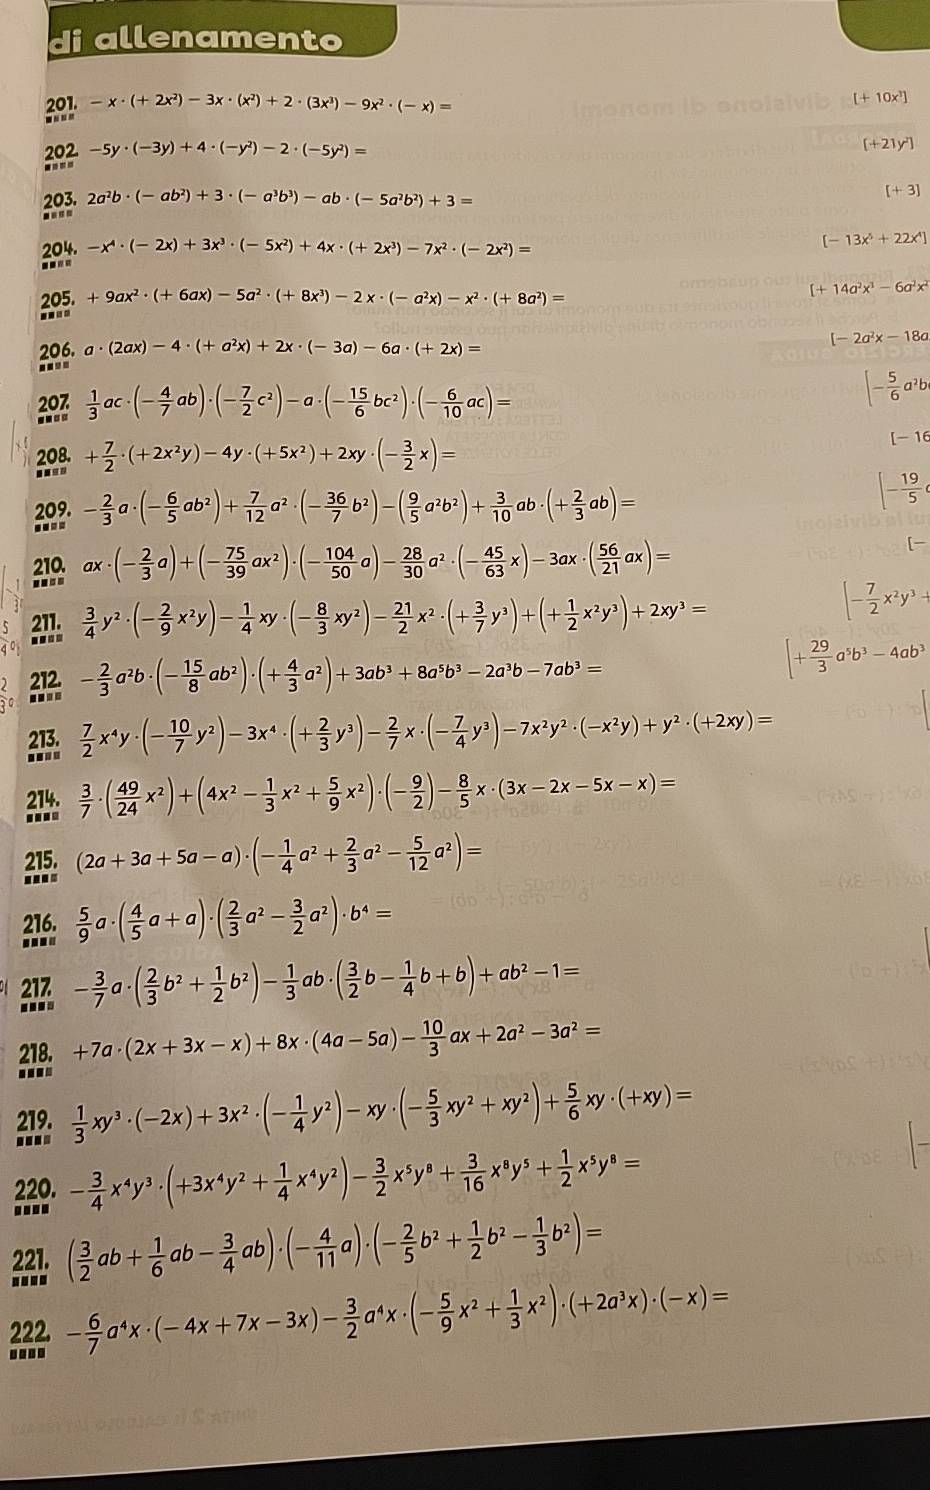 di allenamento
201. – x · (+ 2x²) – 3x · (x²) + 2 · (3x³) – 9x² · (– x) = [+ 10x³]
202. –5y · (–3y) + 4 · (–y²) – 2 · (–5y²) = [+21y²]
203. 2a²b · (– ab²) + 3 · (– a³b³) – ab · (– 5a²b²) + 3 = [+ 3]
204. –x⁴ · (– 2x) + 3x³ · (– 5x²) + 4x · (+ 2x³) – 7x² · (– 2x²) = [– 13x⁵ + 22x⁴]
205. + 9ax² · (+ 6ax) – 5a² · (+ 8x³) – 2 x · (– a²x) – x² · (+ 8a²) = [+ 14a²x³ – 6a²x²
206. a · (2ax) – 4 · (+ a²x) + 2x · (– 3a) – 6a · (+ 2x) = [– 2a²x – 18a
207. 1/3 ac · (–4/7 ab) · (–7/2 c²) – a · (–15/6 bc²) · (–6/10 ac) = [–5/6 a²b
208. +7/2 · (+2x²y) – 4y · (+5x²) + 2xy · (–3/2 x) = [– 16
209. –2/3 a · (–6/5 ab²) + 7/12 a² · (–36/7 b²) – (9/5 a²b²) + 3/10 ab · (+2/3 ab) = [–19/5
210. ax · (–2/3 a) + (–75/39 ax²) · (–104/50 a) – 28/30 a² · (–45/63 x) – 3ax · (56/21 ax) = [–
211. 3/4 y² · (–2/9 x²y) – 1/4 xy · (–8/3 xy²) – 21/2 x² · (+3/7 y³) + (+1/2 x²y³) + 2xy³ = [–7/2 x²y³ +
212. –2/3 a²b · (–15/8 ab²) · (+4/3 a²) + 3ab³ + 8a⁵b³ – 2a³b – 7ab³ = [+29/3 a⁵b³ – 4ab³
213. 7/2 x⁴y · (–10/7 y²) – 3x⁴ · (+2/3 y³) – 2/7 x · (–7/4 y³) – 7x²y² · (–x²y) + y² · (+2xy) = [
214. 3/7 · (49/24 x²) + (4x² – 1/3 x² + 5/9 x²) · (–9/2) – 8/5 x · (3x – 2x – 5x – x) =
215. (2a + 3a + 5a – a) · (–1/4 a² + 2/3 a² – 5/12 a²) =
216. 5/9 a · (4/5 a + a) · (2/3 a² – 3/2 a²) · b⁴ =
217. –3/7 a · (2/3 b² + 1/2 b²) – 1/3 ab · (3/2 b – 1/4 b + b) + ab² – 1 =
218. +7a · (2x + 3x – x) + 8x · (4a – 5a) – 10/3 ax + 2a² – 3a² =
219. 1/3 xy³ · (–2x) + 3x² · (–1/4 y²) – xy · (–5/3 xy² + xy²) + 5/6 xy · (+xy) =
220. –3/4 x⁴y³ · (+3x⁴y² + 1/4 x⁴y²) – 3/2 x⁵y⁸ + 3/16 x⁸y⁵ + 1/2 x⁵y⁸ = [–
221. (3/2 ab + 1/6 ab – 3/4 ab) · (–4/11 a) · (–2/5 b² + 1/2 b² – 1/3 b²) =
222. –6/7 a⁴x · (– 4x + 7x – 3x) – 3/2 a⁴x · (–5/9 x² + 1/3 x²) · (+2a³x) · (–x) =